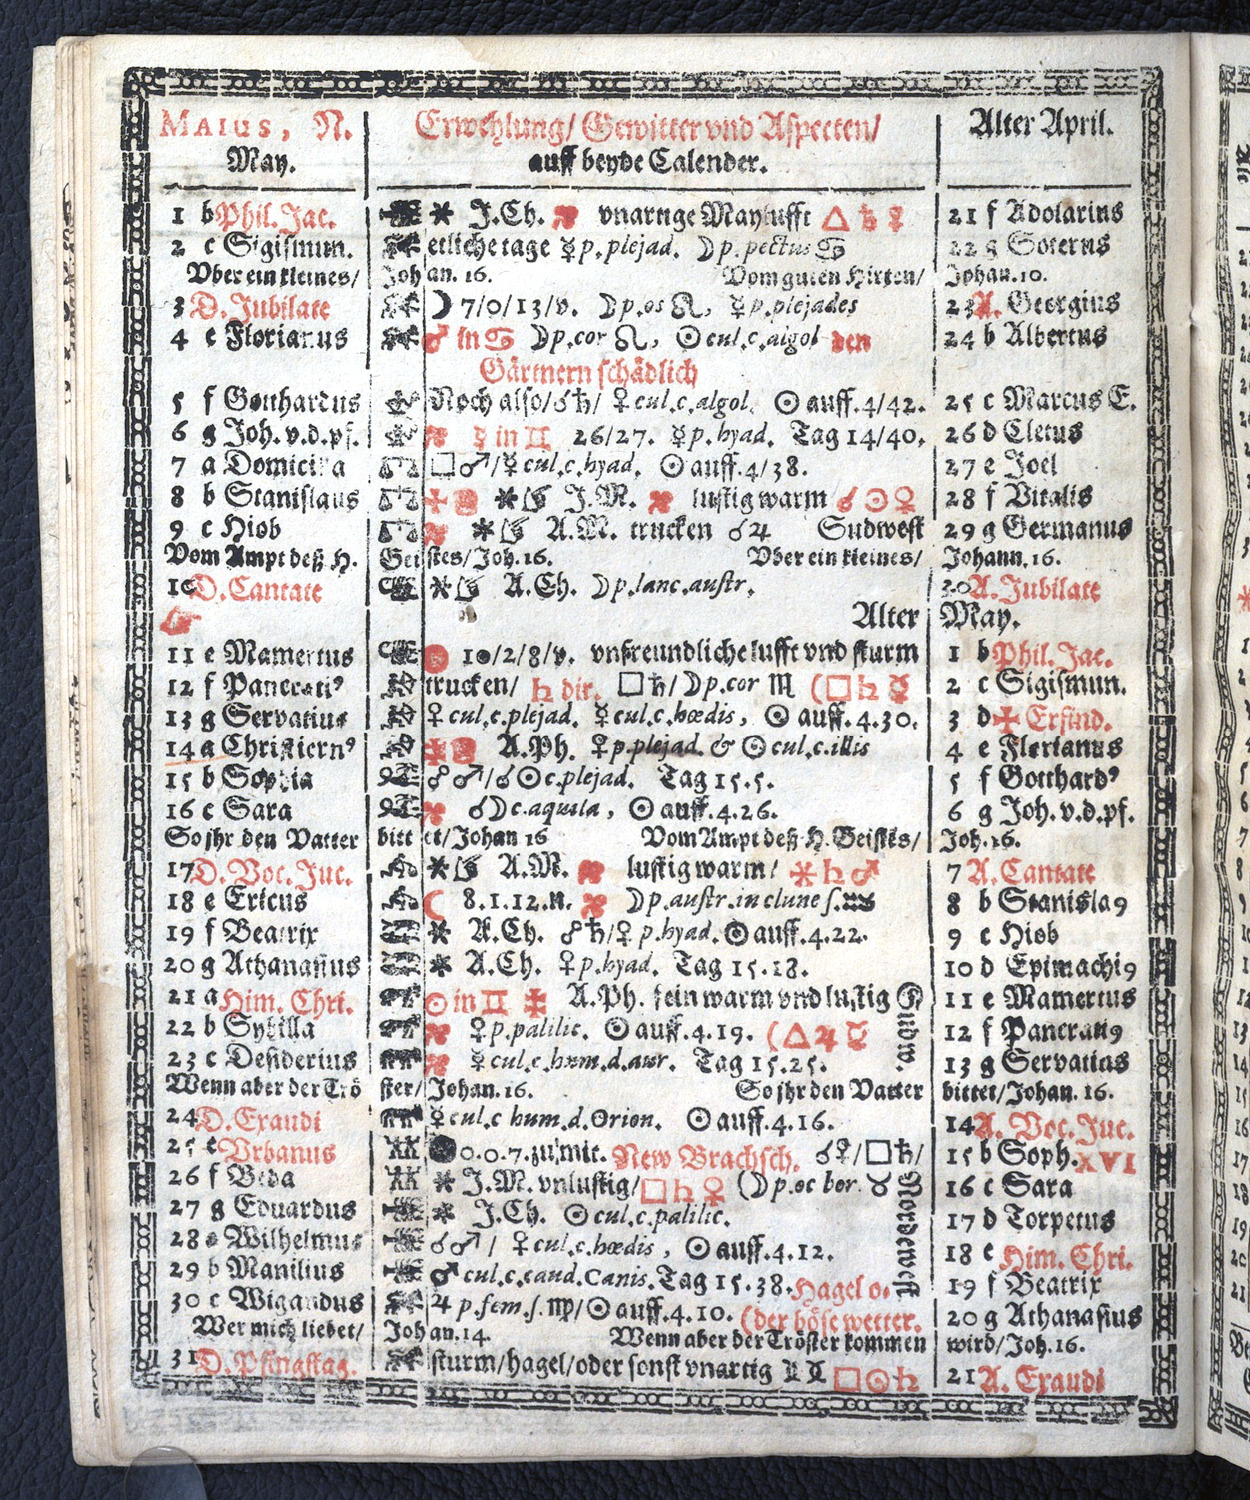 MAIUS, N. Erwehlung/ Gewitter vnd Aspecten/ Alter April.
May. auff beyde Calender.
1 b Phil. Jac. ⚹ J.Ch. vnartige Maylufft △ ♄ ☿ 21 f Adolarius
2 c Sigismun. etliche tage ☿ p. plejad. ☽ p. pectus ♋ 22 g Soterus
Vber ein kleines/ Johan. 16. Vom guten Hirten/ Johan. 10.
3 D. Jubilate ☽ 7/0/13/v. ☽ p. os ♌, ☿ p. plejades 23 A. Georgius
4 e Florianus ♂ in ♋ ☽ p. cor ♌, ☉ cul. c. algol den 24 b Albertus
Gärtnern schädlich
5 f Gotthardus Noch also/ ☌ ♄/ ♀ cul. c. algol. ☉ auff. 4/42. 25 c Marcus E.
6 g Joh. v. d. pf. ☿ in ♊ 26/27. ☿ p. hyad. Tag 14/40. 26 d Cletus
7 a Domicilla □ ♂/ ☿ cul. c. hyad. ☉ auff. 4/38. 27 e Joel
8 b Stanislaus ⚹ J.M. lustig warm ☌ ☉ ♀ 28 f Vitalis
9 c Hiob ⚹ A.M. trucken ☌ ♃ Sudwest 29 g Germanus
Vom Ampt deß H. Geistes/ Joh. 16. Vber ein kleines/ Johann. 16.
10 D. Cantate ⚹ A.Ch. ☽ p. lanc. austr. 30 A. Jubilate
Alter May.
11 e Mamertus 10/2/8/v. vnfreundliche lufft vnd sturm 1 b Phil. Jac.
12 f Pancrati⁹ trucken/ ♄ dir. □ ♄/ ☽ p. cor ♏ (□ ♄ ☿ 2 c Sigismun.
13 g Servatius ♀ cul. c. plejad. ☿ cul. c. hœdis, ☉ auff. 4.30. 3 d ✠ Erfind.
14 a Christiern⁹ A.Ph. ♀ p. plejad. & ☉ cul. c. illis 4 e Florianus
15 b Sophia ☍ ♂/ ☌ ☉ c. plejad. Tag 15.5. 5 f Gotthard⁹
16 c Sara ☌ ☽ c. aquila, ☉ auff. 4.26. 6 g Joh. v. d. pf.
So jhr den Vatter bittet/ Johan 16 Vom Ampt deß H. Geistes/ Joh. 16.
17 D. Voc. Juc. ⚹ A.M. lustig warm/ ⚹ ♄ ♂ 7 A. Cantate
18 e Ericus ☾ 8.1.12.N. ☽ p. austr. in clune s. ♒ 8 b Stanisla9
19 f Beatrix ⚹ A.Ch. ☍ ♄/ ♀ p. hyad. ☉ auff. 4.22. 9 c Hiob
20 g Athanasius ⚹ A.Ch. ♀ p. hyad. Tag 15.18. 10 d Epimachi9
21 a Him. Chri. ☉ in ♊ ✠ A.Ph. fein warm vnd lustig 11 e Mamertus
22 b Sybilla ♀ p. palilic. ☉ auff. 4.19. (△ ♃ ☿ 12 f Pancrati9
23 c Desiderius ☿ cul. c. hum. d. aur. Tag 15.25. 13 g Servatius
Wenn aber der Tröster/ Johan. 16. So jhr den Vatter bittet/ Johan. 16.
24 D. Exaudi ☿ cul. c hum. d. Orion. ☉ auff. 4.16. 14 A. Voc. Juc.
25 e Vrbanus 0.0.7. zu mit. New Brachsch. ☌ ☿/ □ ♄/ 15 b Soph. XVI
26 f Beda ⚹ J.M. vnlustig/ □ ♄ ♀ (☽ p. oc bor. ♉ 16 c Sara
27 g Eduardus ⚹ J.Ch. ☉ cul. c. palilic. 17 d Torpetus
28 a Wilhelmus ☌ ♂/ ♀ cul. c. hœdis, ☉ auff. 4.12. 18 e Him. Chri.
29 b Manilius ♂ cul. c. caud. Canis. Tag 15.38. Hagel o. 19 f Beatrix
30 c Wigandus ♃ p. fem. s. ♍/ ☉ auff. 4.10. (der böse wetter. 20 g Athanasius
Wer mich liebet/ Johan. 14. Wenn aber der Tröster kommen wird/ Joh. 16.
31 D. Pfingstag. sturm/ hagel/ oder sonst vnartig □ ☉ ♄ 21 A. Exaudi